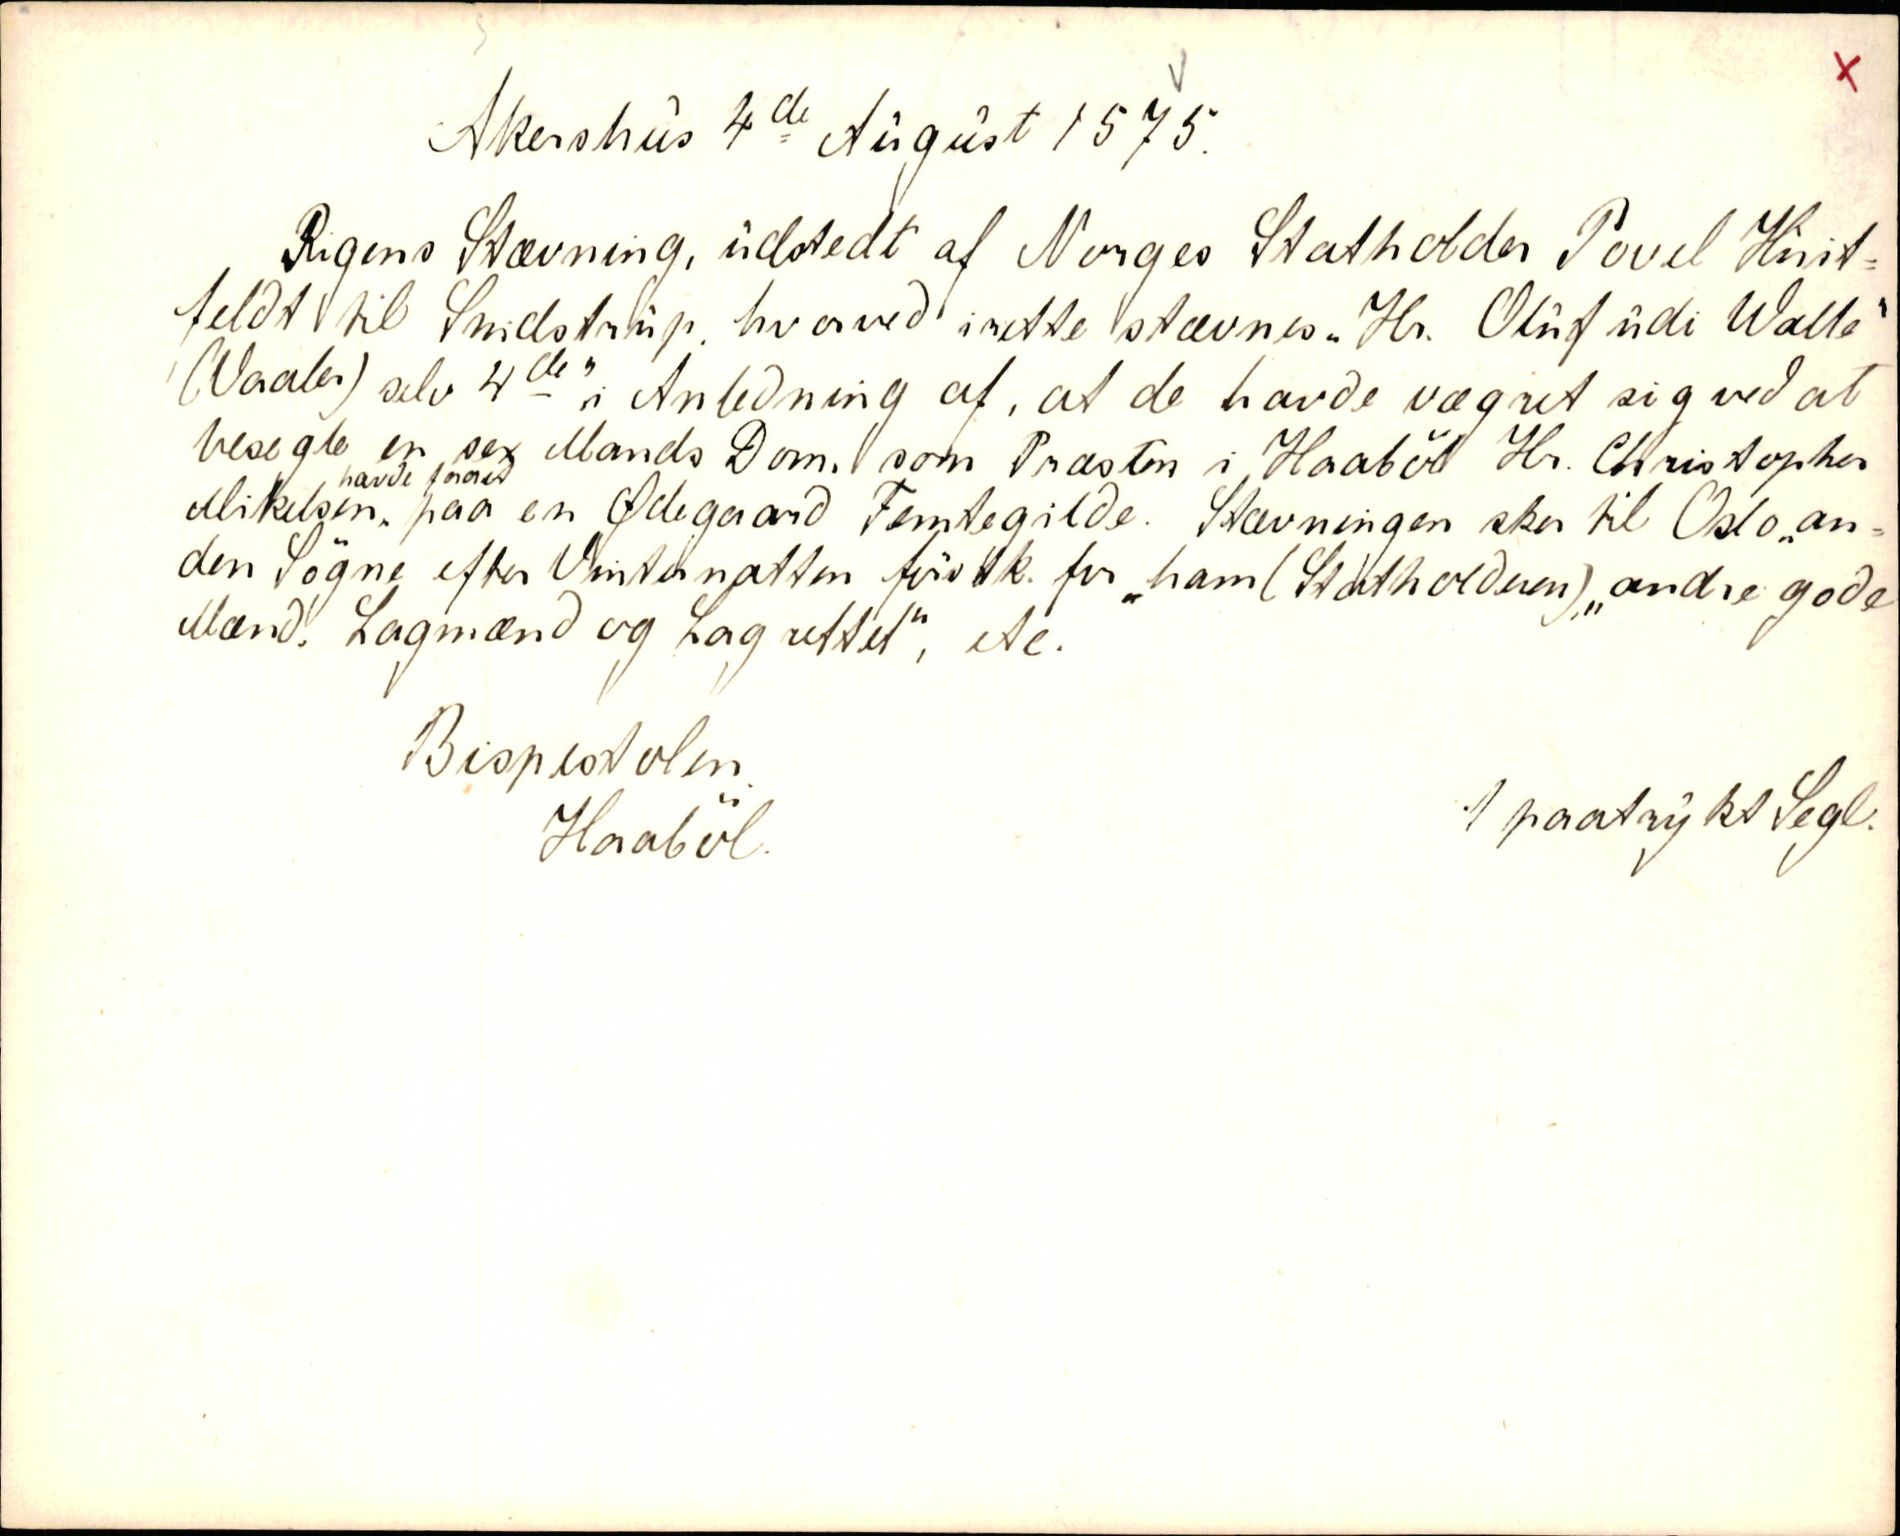 x
Akershus 4de August 1575.
Rigens Stævning, udstedt af Norges Statholder Povel Huit-
feldt til Smidstrup, hvorved irette stævnes „Hr. Oluf udi Walle"
(Vaaler) selv 4de" i Anledning af, at de havde vægret sig ved at
besegle en sex Mands Dom, som Præsten i Haaböl Hr. Christopher
havde faaet
Mikelsen, paa en Ødegaard Femtegilde. Stævningen sker til Oslo „an-
den Sögne efter Vinternatten förstk. for „ham (Statholderen)„ andre gode
Mænd, Lagmænd og Lagrettet", etc.
Bispestolen.
Haaböl.
1 paatrykt Segl.